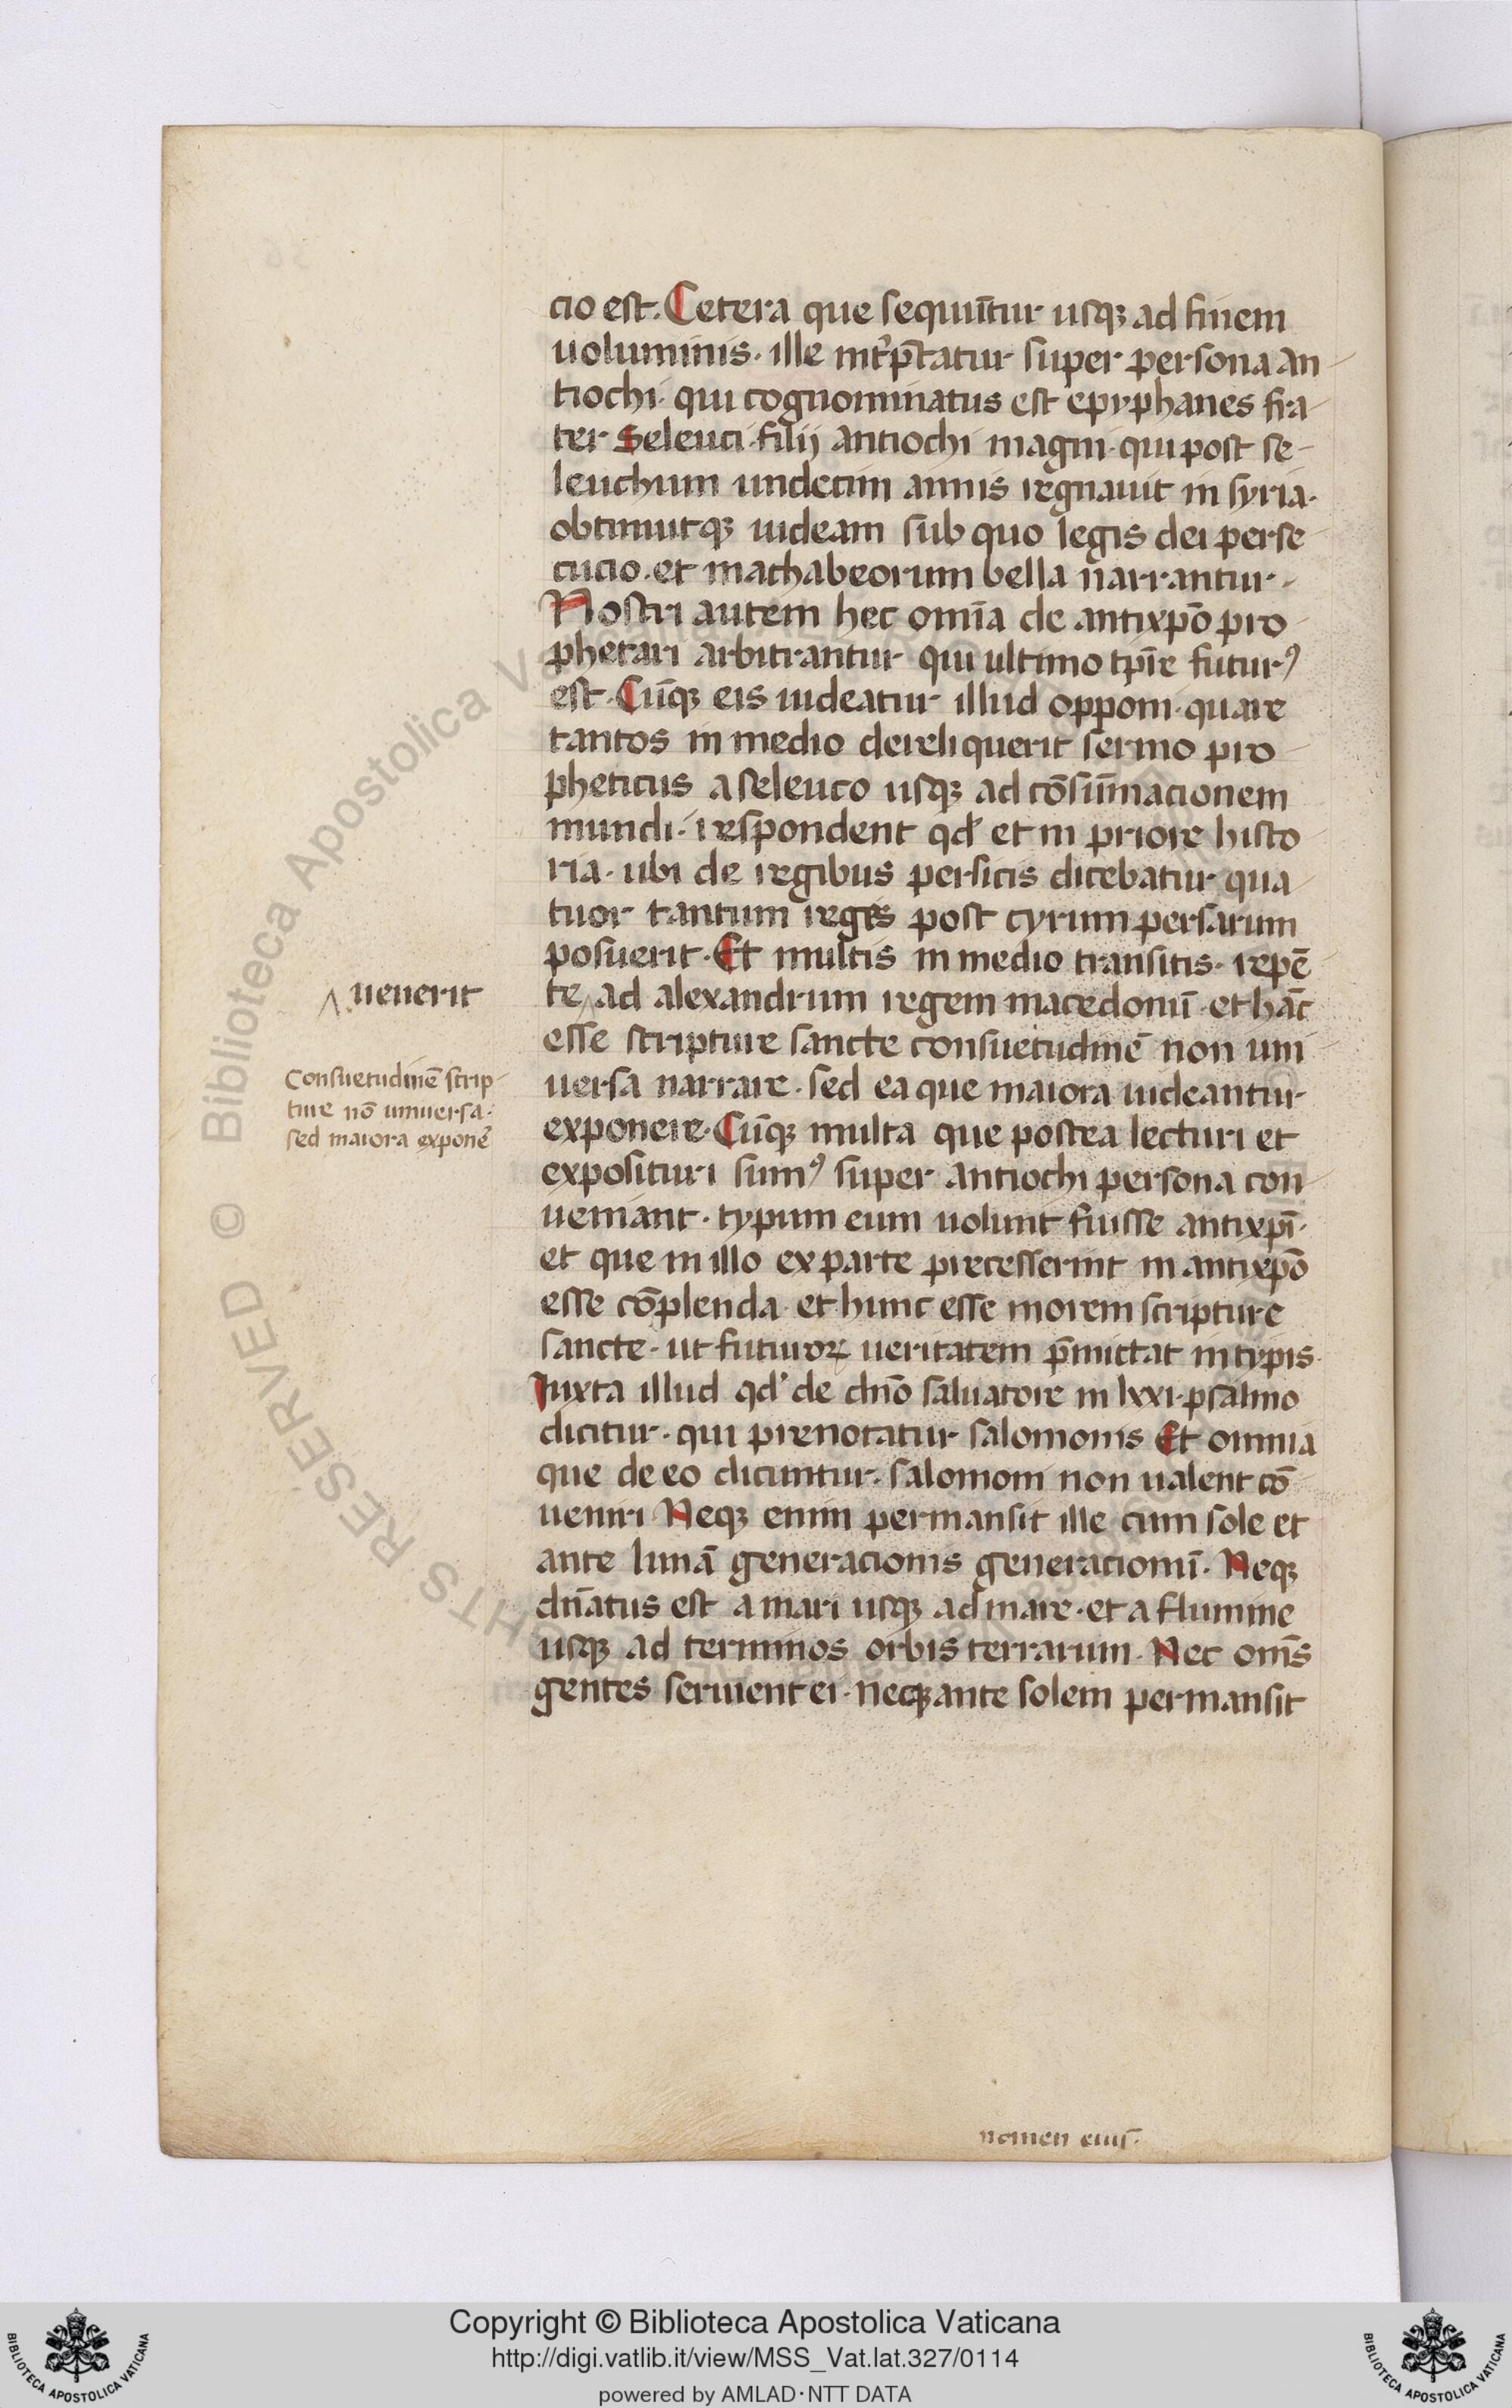 cio est. Cetera que sequūtur usqꝫ ad finem
uoluminis. ille int̉p̄tatur super persona an
tiochi. qui cognominatus est epyphanes fra
ter Seleuci filij antiochi magni. qui post se-
leuchum undecim annis regnauit in syria.
obtinuitqꝫ iudeam sub quo legis dei perse
cucio. et machabeorum bella narrantur.
Nostri autem hec om̄ia de antixp̄o pro
phetari arbitrantur qui ultimo tp̄re futurꝰ
est. Cūqꝫ eis uideatur illud opponi. quare
tantos in medio dereliquerit sermo pro
pheticus a seleuco usqꝫ ad cōsūmacionem
mundi. respondent qd̓ et in priore histo
ria. ubi de regibus persicis dicebatur qua
tuor tantum reges post cyrum persarum
posuerit. Et multis in medio transitis. repē
te ^ ad alexandrum regem macedonū et hāc
^. uenerit
esse scripture sancte consuetudinē non uni
uersa narrare. sed ea que maiora uideantur
Consuetudinē scrip
ture nō uniuersa.
sed maiora exponē
exponere. Cūqꝫ multa que postea lecturi et
exposituri sumꝰ super antiochi persona con
ueniant. typum eum uolunt fuisse antixp̄i.
et que in illo ex parte precesserint in antixp̄o
esse cōplenda et hunc esse morem scripture
sancte. ut futuroꝝ ueritatem p̄mittat in typis.
Iuxta illud qd̓ de dn̄o saluatore in lxxi. psalmo
dicitur. qui prenotatur salomonis Et omnia
que de eo dicuntur. salomoni non ualent cō
ueniri Neqꝫ enim permansit ille cum sole et
ante lunā generacionis generacionū. Neqꝫ
dn̄atus est a mari usqꝫ ad mare. et a flumine
usqꝫ ad terminos orbis terrarum. Nec om̄s
gentes seruient ei. neqꝫ ante solem permansit
nomen eius.
Biblioteca Apostolica Vaticana
RIGHTS RESERVED ©
BIBLIOTECA APOSTOLICA VATICANA
Copyright © Biblioteca Apostolica Vaticana
http://digi.vatlib.it/view/MSS_Vat.lat.327/0114
powered by AMLAD·NTT DATA
BIBLIOTECA APOSTOLICA VATICANA